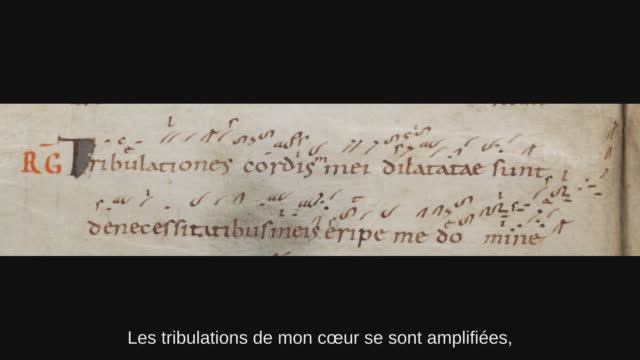 RG Tribulationes cordis mei dilatatae sunt
denecessitatibus meis eripe me domine
Les tribulations de mon cœur se sont amplifiées,